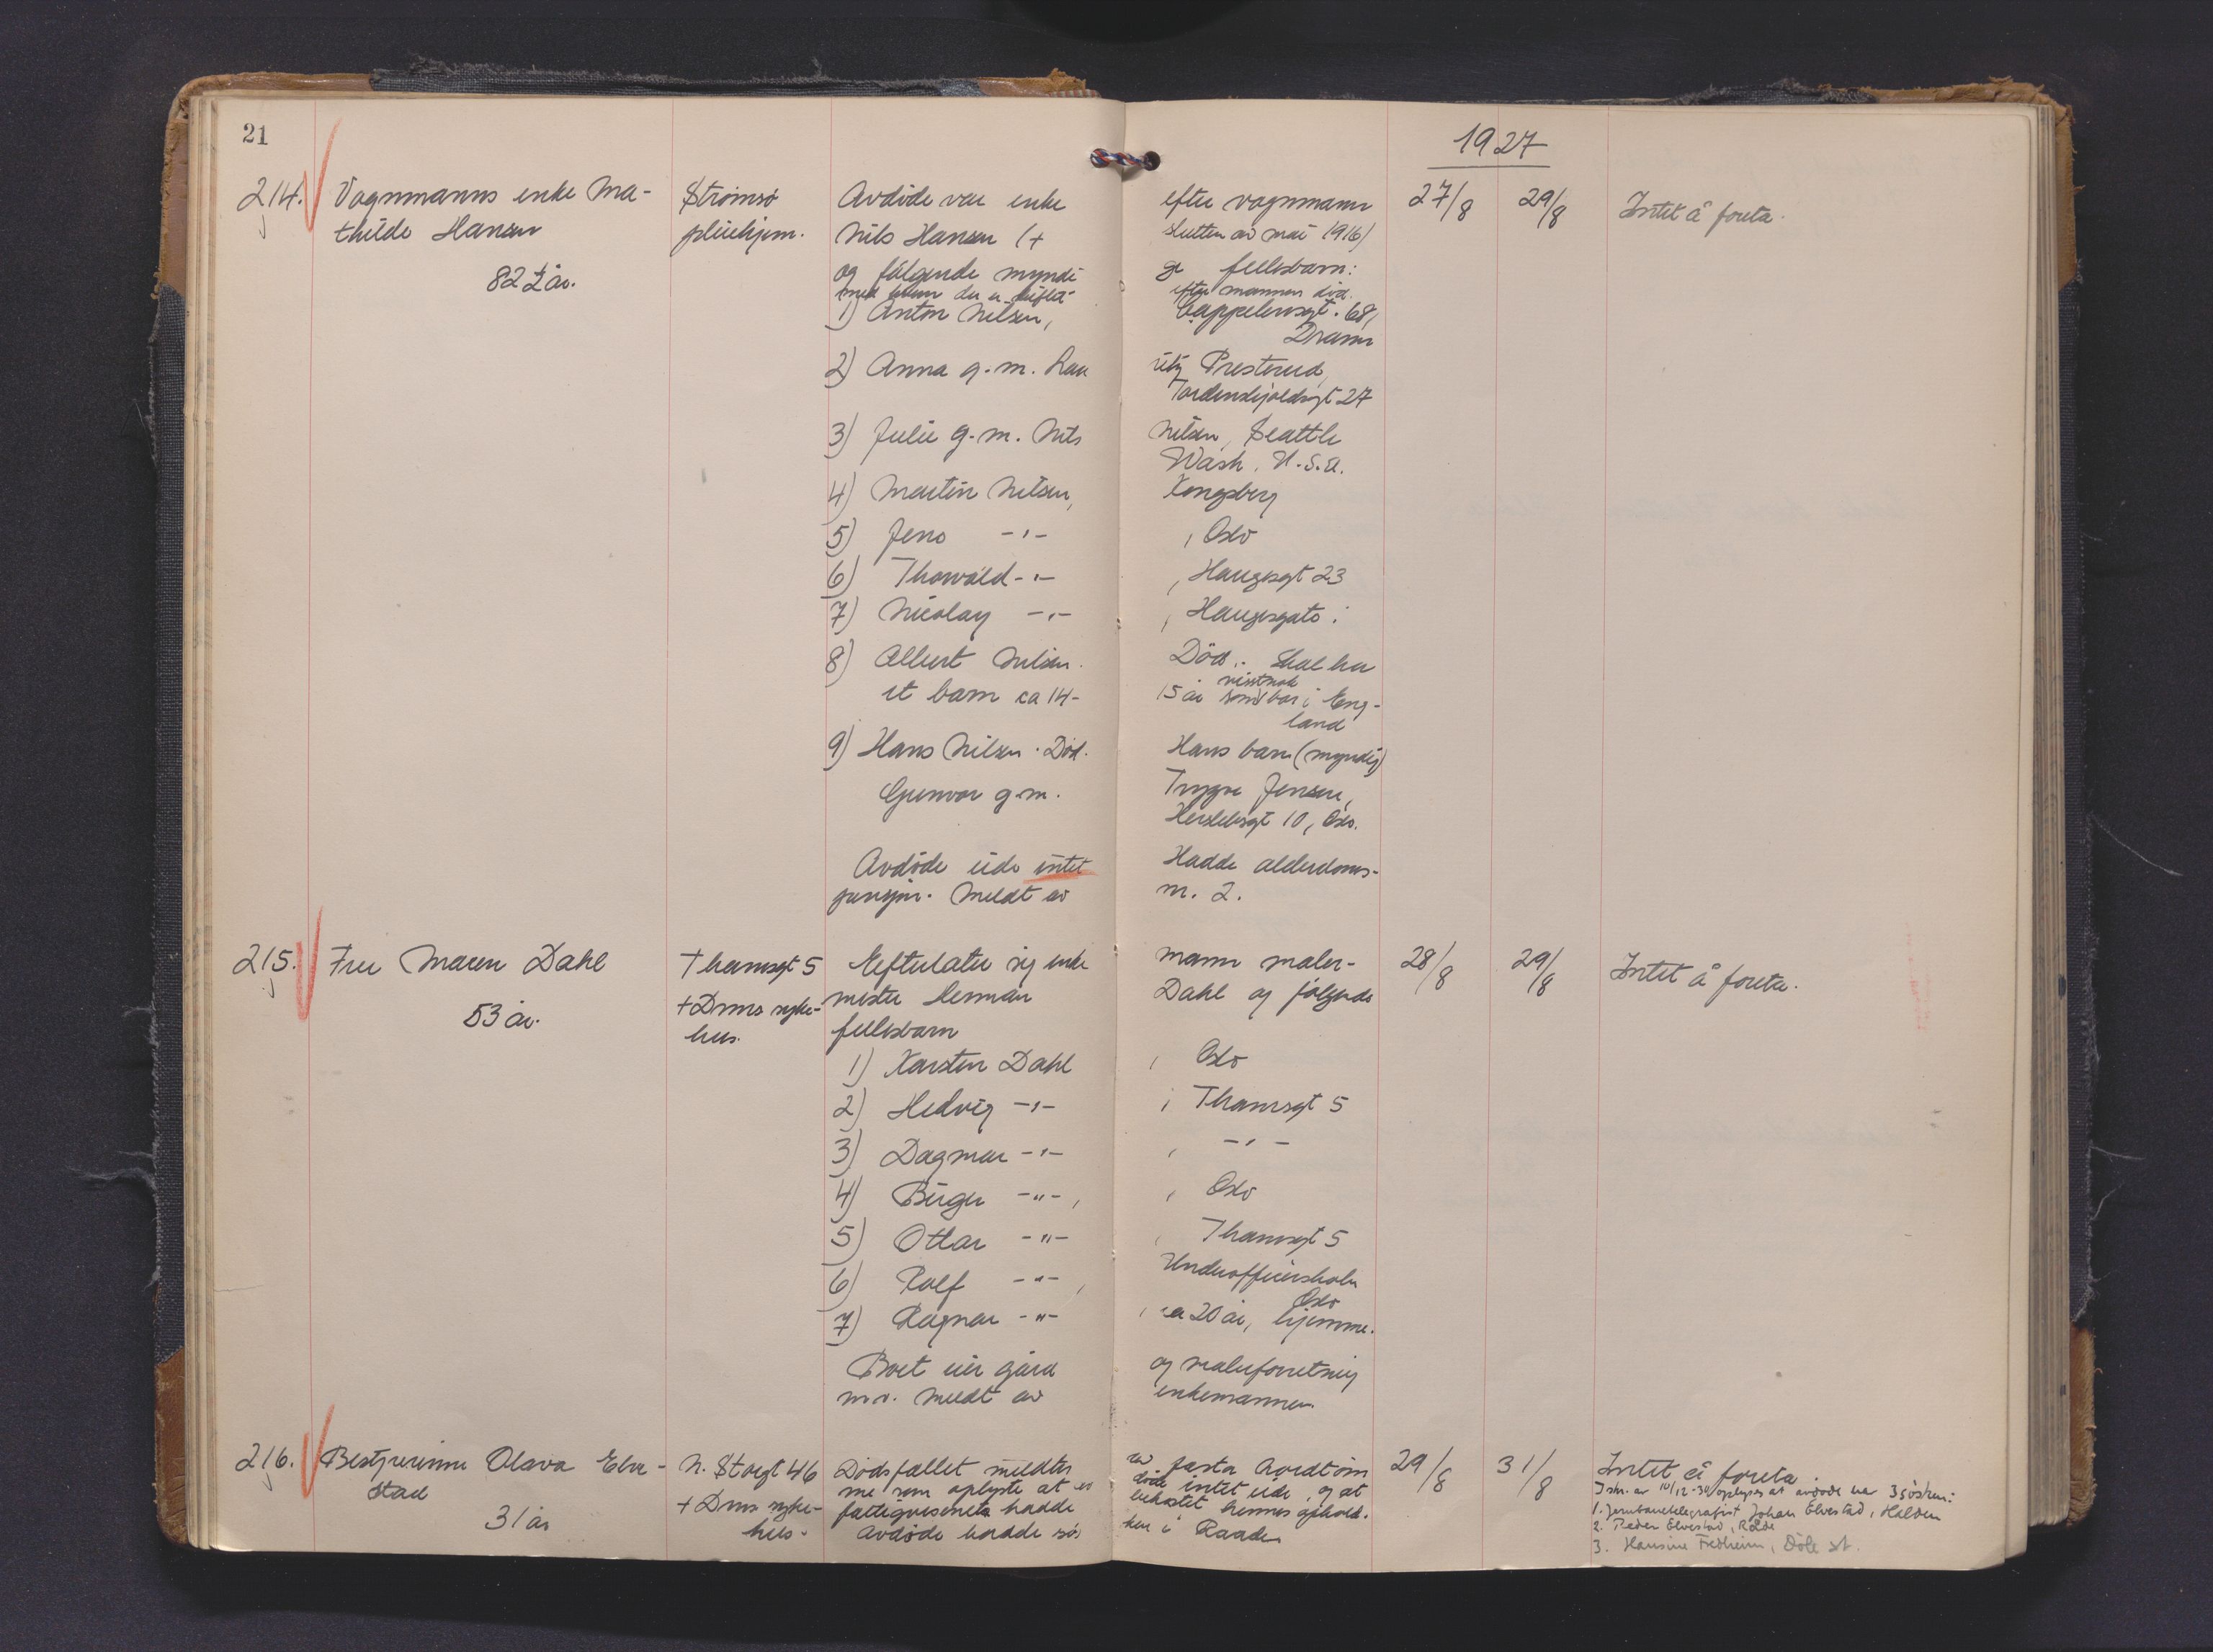 21
1927
214. Vognmanns enke Ma-
thilde Hansen
82 ½ år.
Strømsø
pleiehjem.
Avdøde var enke efter vognmann
Nils Hansen (+ slutten av mai 1916)
og følgende myndige fellesbarn:
med hvem der er skiftet efter mannens død.
1) Anton Nilsen, Cappelensgt. 68,
Dramn
2) Anna g. m. Lauritz Presterud,
Tordenskjoldsgt 27
3) Julie g. m. Nils Nilsen, Seattle
Wash. U.S.A.
4) Martin Nilsen, Kongsberg
5) Jens -"- , Oslo
6) Thorvald -"- , Haugesgt 23
7) Nicolay -"- , Haugesgate
8) Albert Nilsen. Död. Skal ha
et barn ca 14- 15 år som visstnok bor i Eng-
land
9) Hans Nilsen. Död. Hans barn (myndig)
Gunvor g.m. Trygve Jensen,
Herslebsgt 10, Oslo.
Avdöde eide intet Hadde alderdoms-
pensjon. Meldt av nr. 2.
27/8
29/8
Intet å foreta.
215. Fru Maren Dahl
53 år.
Thamsgt 5
+ Dmns syke-
hus.
Efterlater sig enkemann maler-
mester Herman Dahl og følgende
fellesbarn
1) Karsten Dahl , Oslo
2) Hedvig -"- , Thamsgt 5
3) Dagmar -"- , -"-
4) Birger -"- , Oslo
5) Ottar -"- , Thamsgt 5
6) Rolf -"- , Underofficersskolen
Oslo
7) Ragnar -"- , ca 20 år, hjemme.
Boet eier gård og malerforretning
m.v. Meldt av enkemannen.
28/8
29/8
Intet å foreta.
216. Bestyrerinne Olava Elve-
stad
31 år
N. Storgt 46
+ Dmns syke-
hus.
Dødsfallet meldtes av
me som oplyste at av døde intet eide, og at
fattigvesenet hadde bekostet hennes ophold.
Avdöde hadde søsken i Raade
29/8
31/8
Intet å foreta.
I skr. av 10/12-30 oplyses at avdøde har 3 søsken:
1. Jernbanetelegrafist Johan Elvestad, Halden
2. Peder Elvestad, Råde
3. Hansine Fredheim, Döle st.